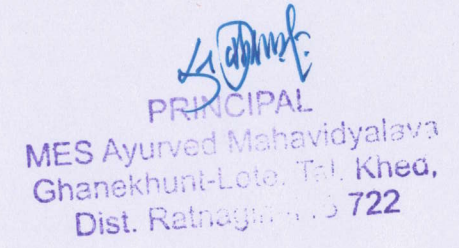 PRINCIPAL
MES Ayurved Mahavidyalaya
Ghanekhunt-Lote, Tal. Khed,
Dist. Ratnagiri 722